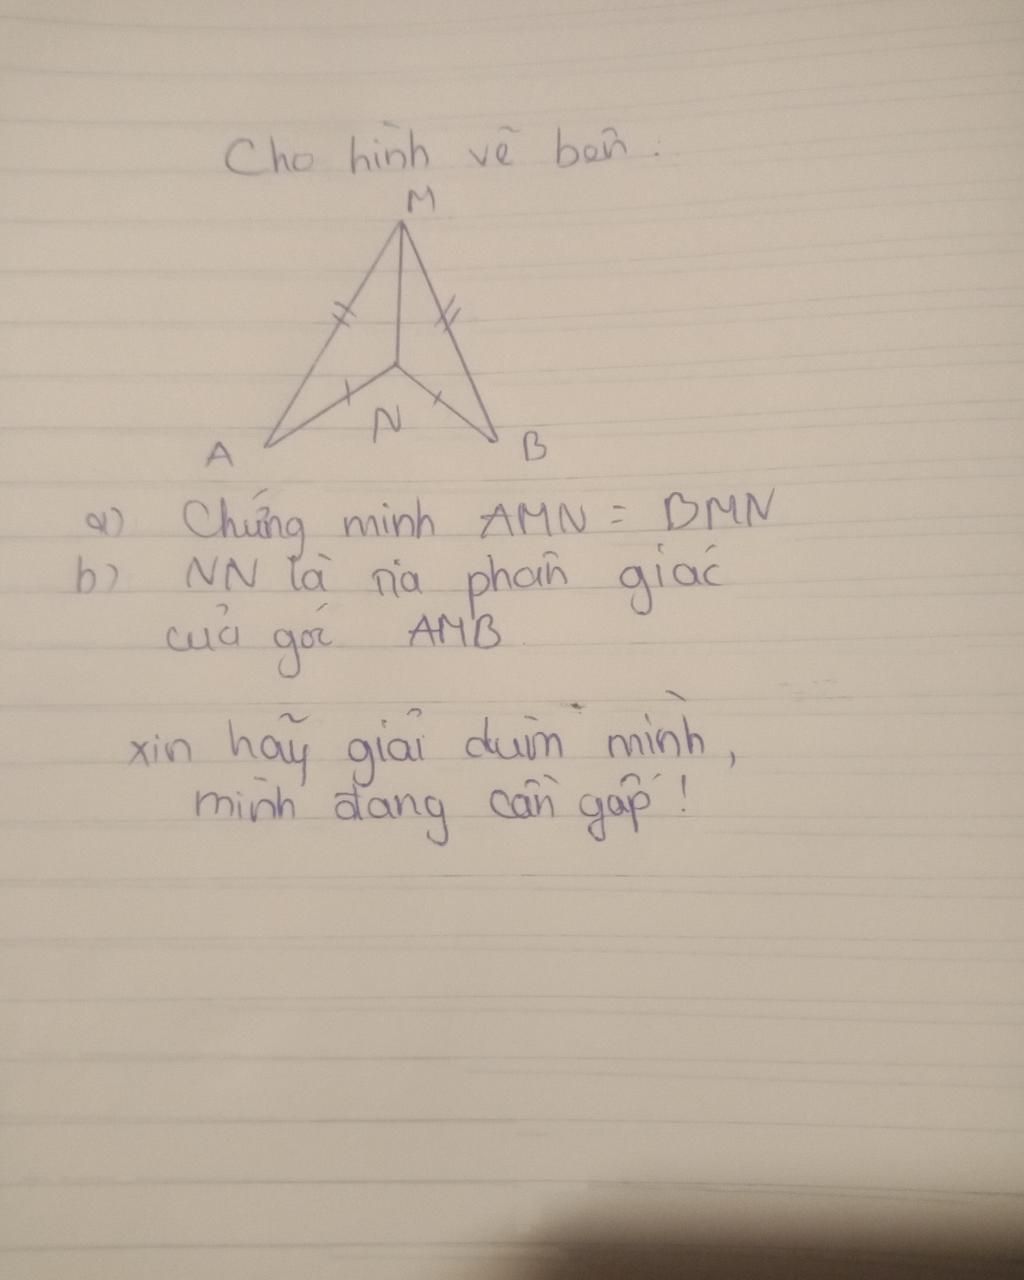 Cho hình vẽ bên :
M
A
N
B
a) Chứng minh AMN = BMN
b) NN là tia phân giác
của góc AMB.
xin hãy giải dùm mình,
mình đang cần gấp !